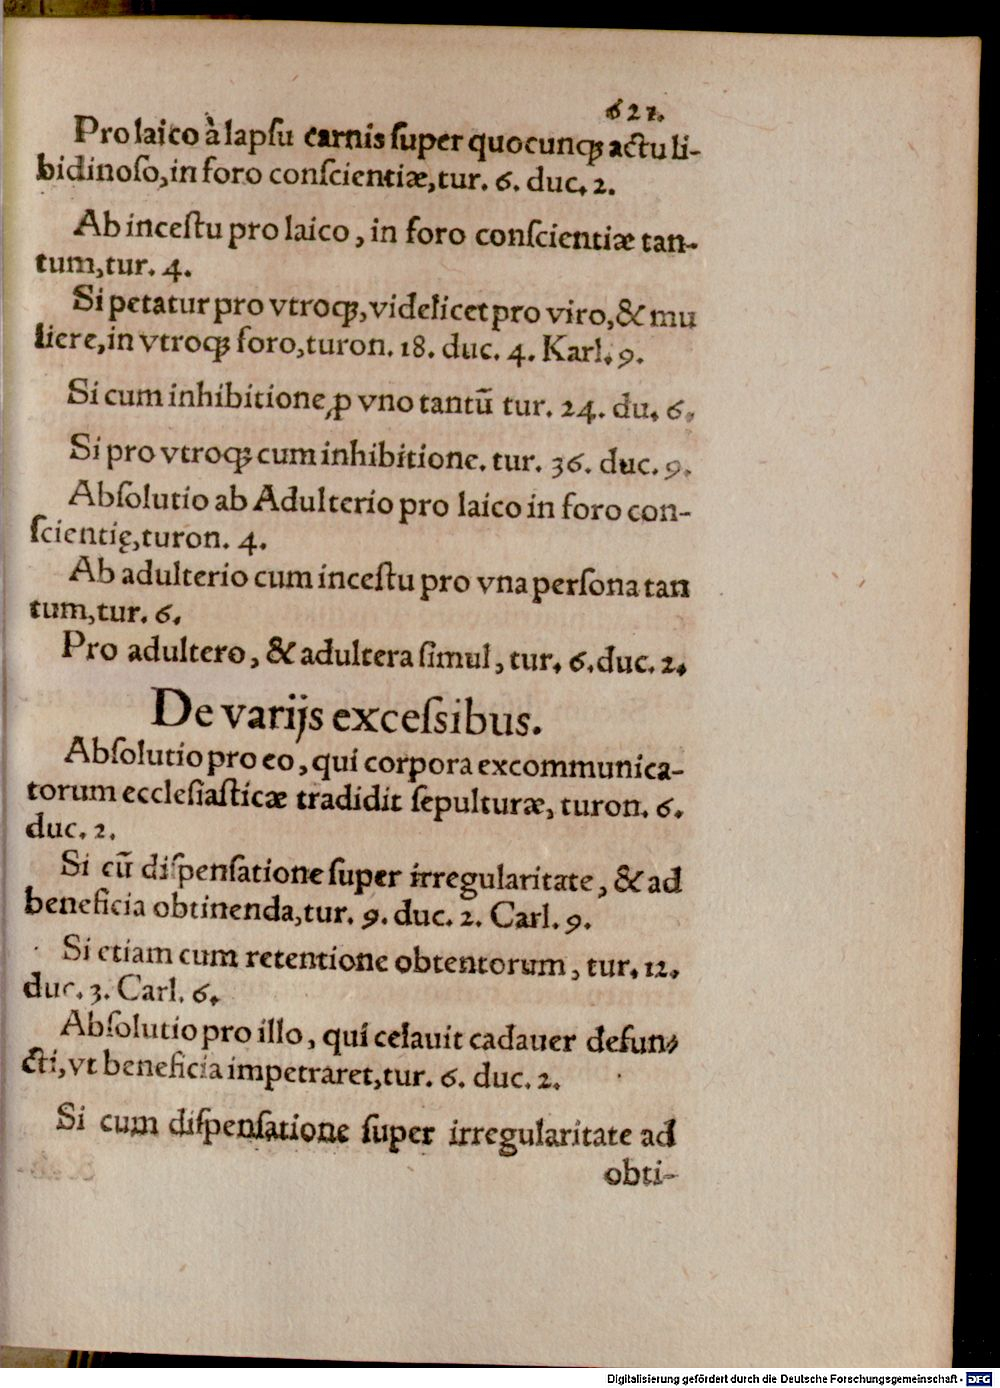 621.
Pro laico à lapſu carnis ſuper quocunq; actu li-
bidinoſo, in foro conſcientiæ, tur. 6. duc. 2.
Ab inceſtu pro laico, in foro conſcientiæ tan-
tum, tur. 4.
Si petatur pro vtroq;, videlicet pro viro, & mu
liere, in vtroq; foro, turon. 18. duc. 4. Karl. 9.
Si cum inhibitione, ꝓ vno tantū tur. 24. du. 6.
Si pro vtroq; cum inhibitione. tur. 36. duc. 9.
Abſolutio ab Adulterio pro laico in foro con-
ſcientię, turon. 4.
Ab adulterio cum inceſtu pro vna perſona tan
tum, tur. 6.
Pro adultero, & adultera ſimul, tur. 6. duc. 2.
De varijs exceſsibus.
Abſolutio pro eo, qui corpora excommunica-
torum eccleſiaſticæ tradidit ſepulturæ, turon. 6.
duc. 2.
Si cū diſpenſatione ſuper irregularitate, & ad
beneficia obtinenda, tur. 9. duc. 2. Carl. 9.
Si etiam cum retentione obtentorum, tur. 12.
duc. 3. Carl. 6.
Abſolutio pro illo, qui celauit cadauer defun-
cti, vt beneficia impetraret, tur. 6. duc. 2.
Si cum diſpenſatione ſuper irregularitate ad
obti-
Digitalisierung gefördert durch die Deutsche Forschungsgemeinschaft - DFG